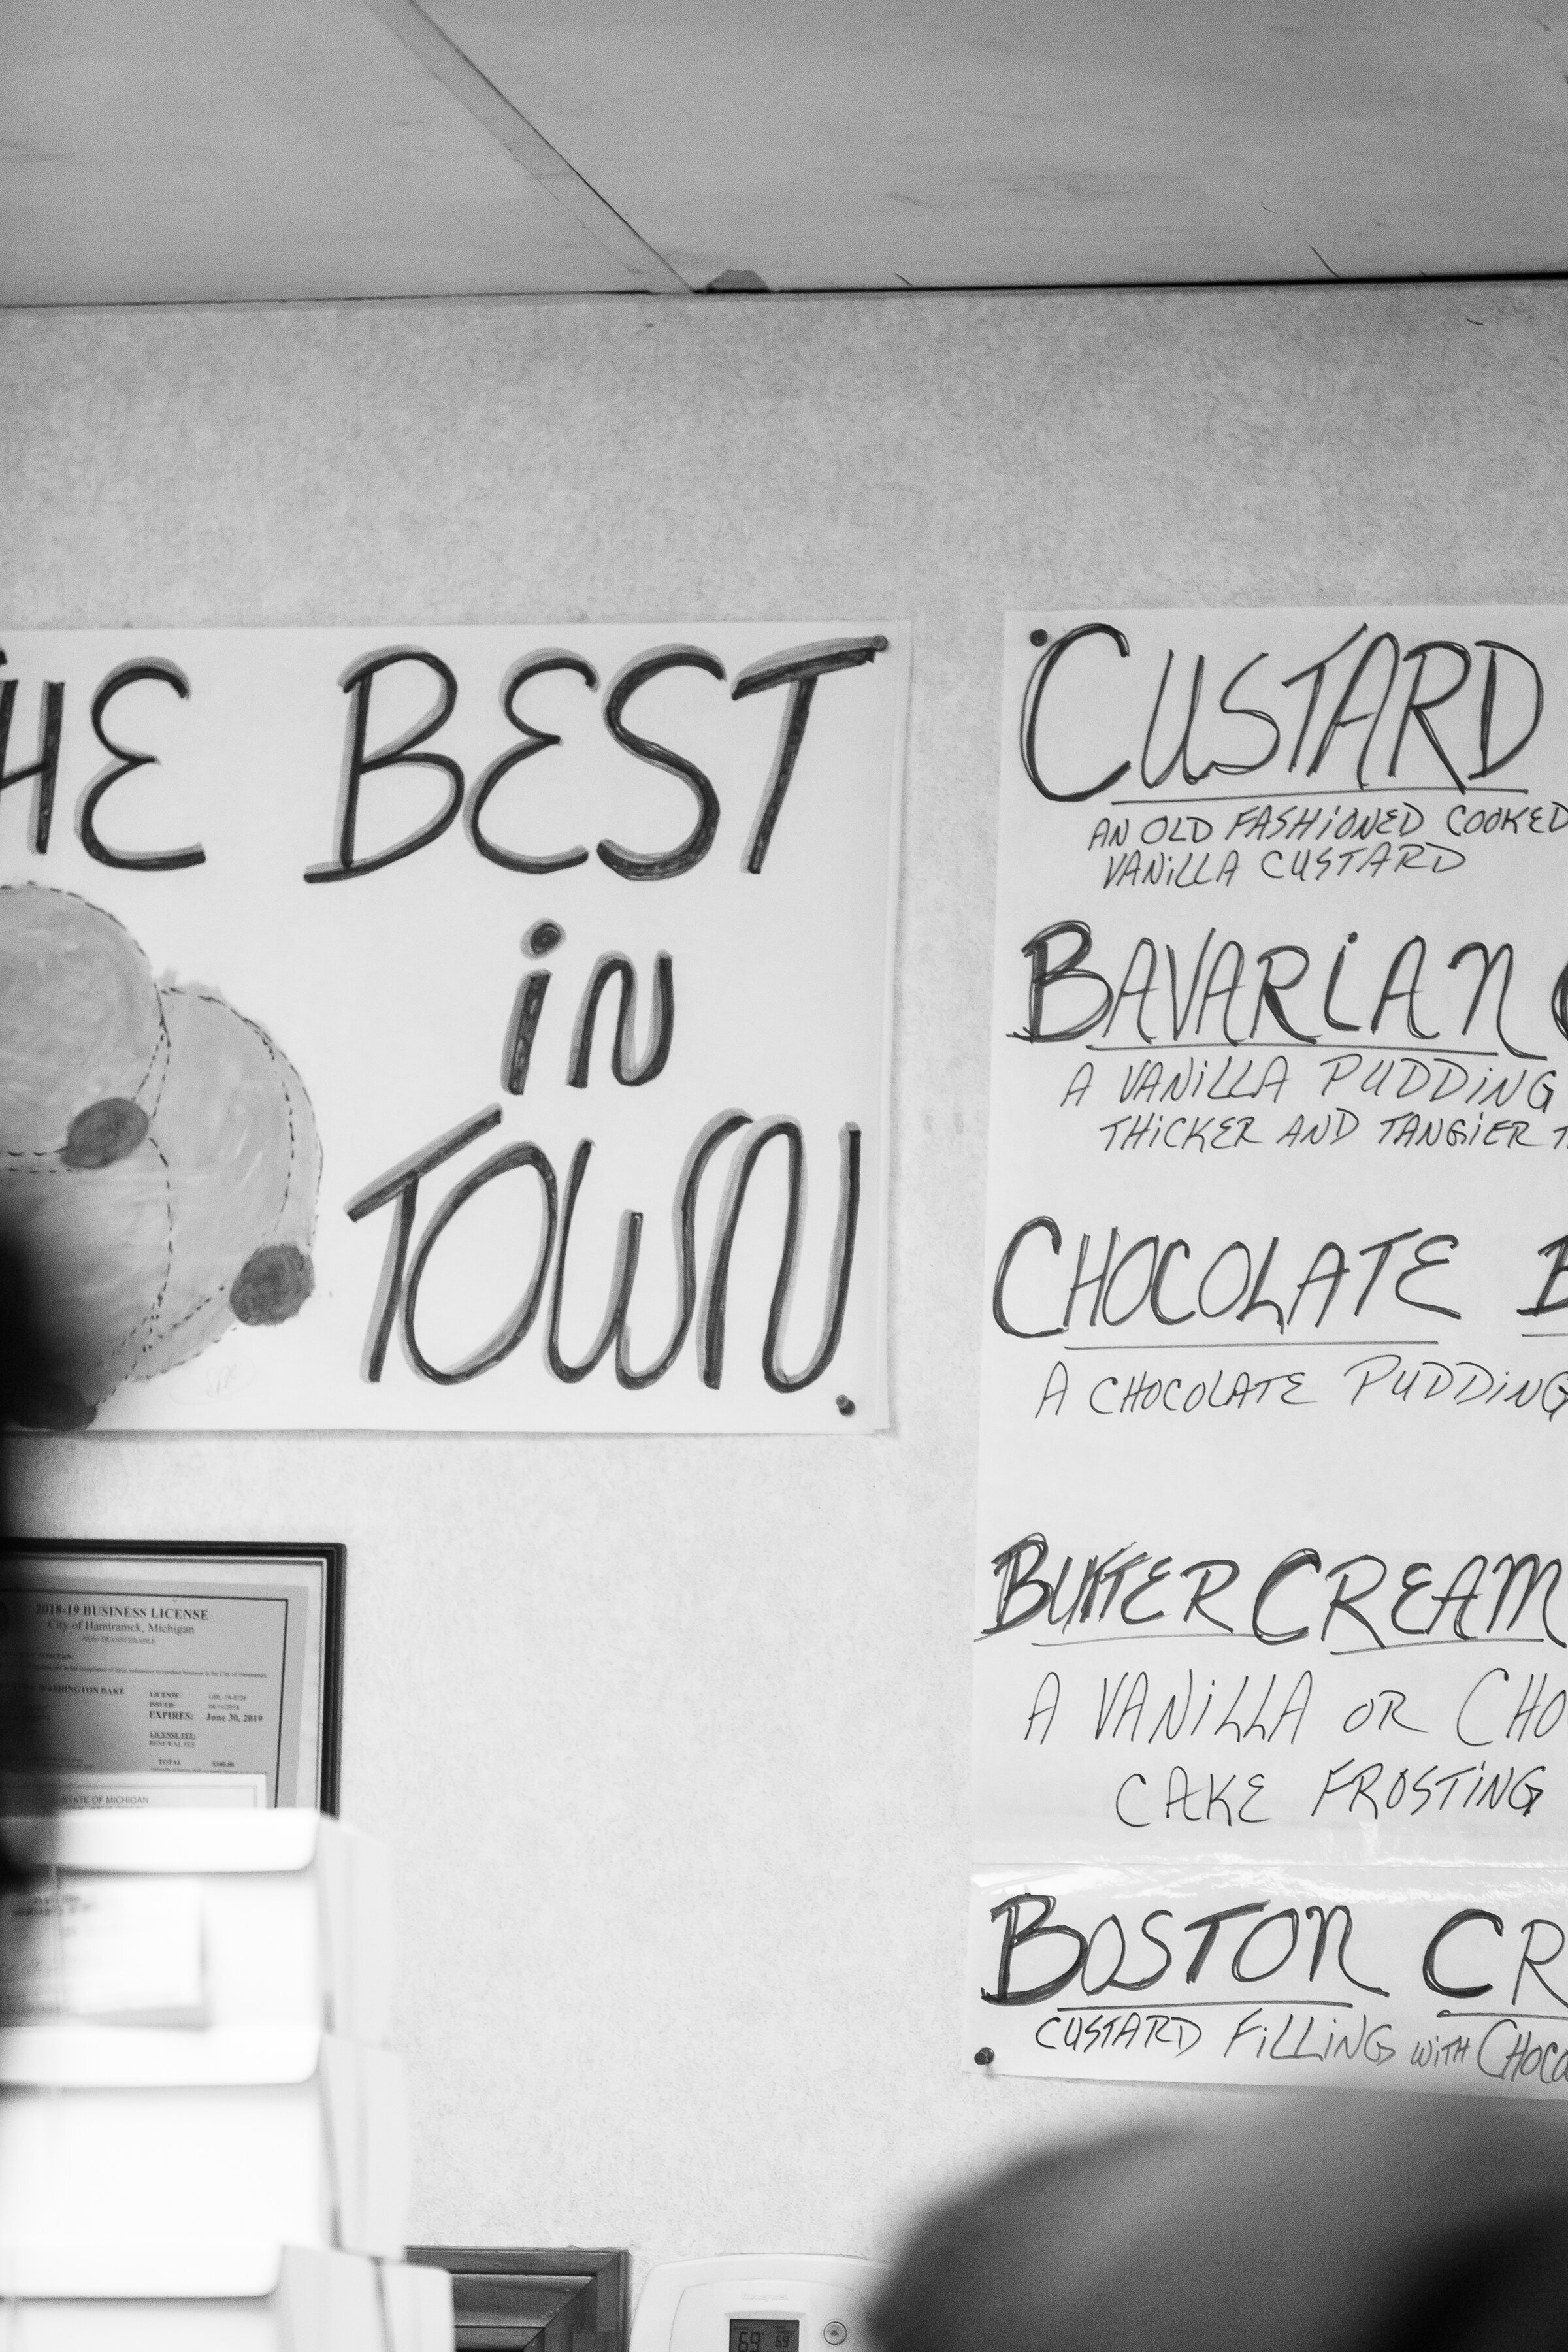 HE BEST
iN
TOWN
CUSTARD
AN OLD FASHiONED COOKED
VANiLLA CUSTARD
BAVARiAN
A VANiLLA PUDDiNG
THiCKER AND TANGiER
CHOCOLATE
A CHOCOLATE PUDDiNG
BUTTER CREAM
A VANiLLA OR CHO
CAKE FROSTiNG
BOSTON CR
CUSTARD FiLLiNG WiTH CHOCO
2018-19 BUSINESS LICENSE
City of Hamtramck, Michigan
NON-TRANSFERABLE
CONCERN:
WASHINGTON BAKE
LICENSE:
ISSUED:
EXPIRES: June 30, 2019
LICENSE FEE:
RENEWAL FEE
TOTAL $100.00
STATE OF MICHIGAN
69 69